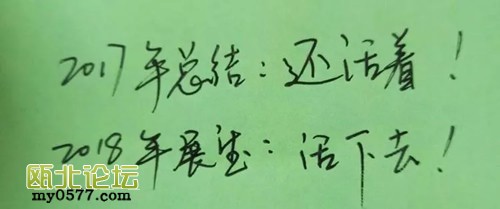 2017年总结：还活着！
2018年展望：活下去！
瓯北论坛
my0577.com